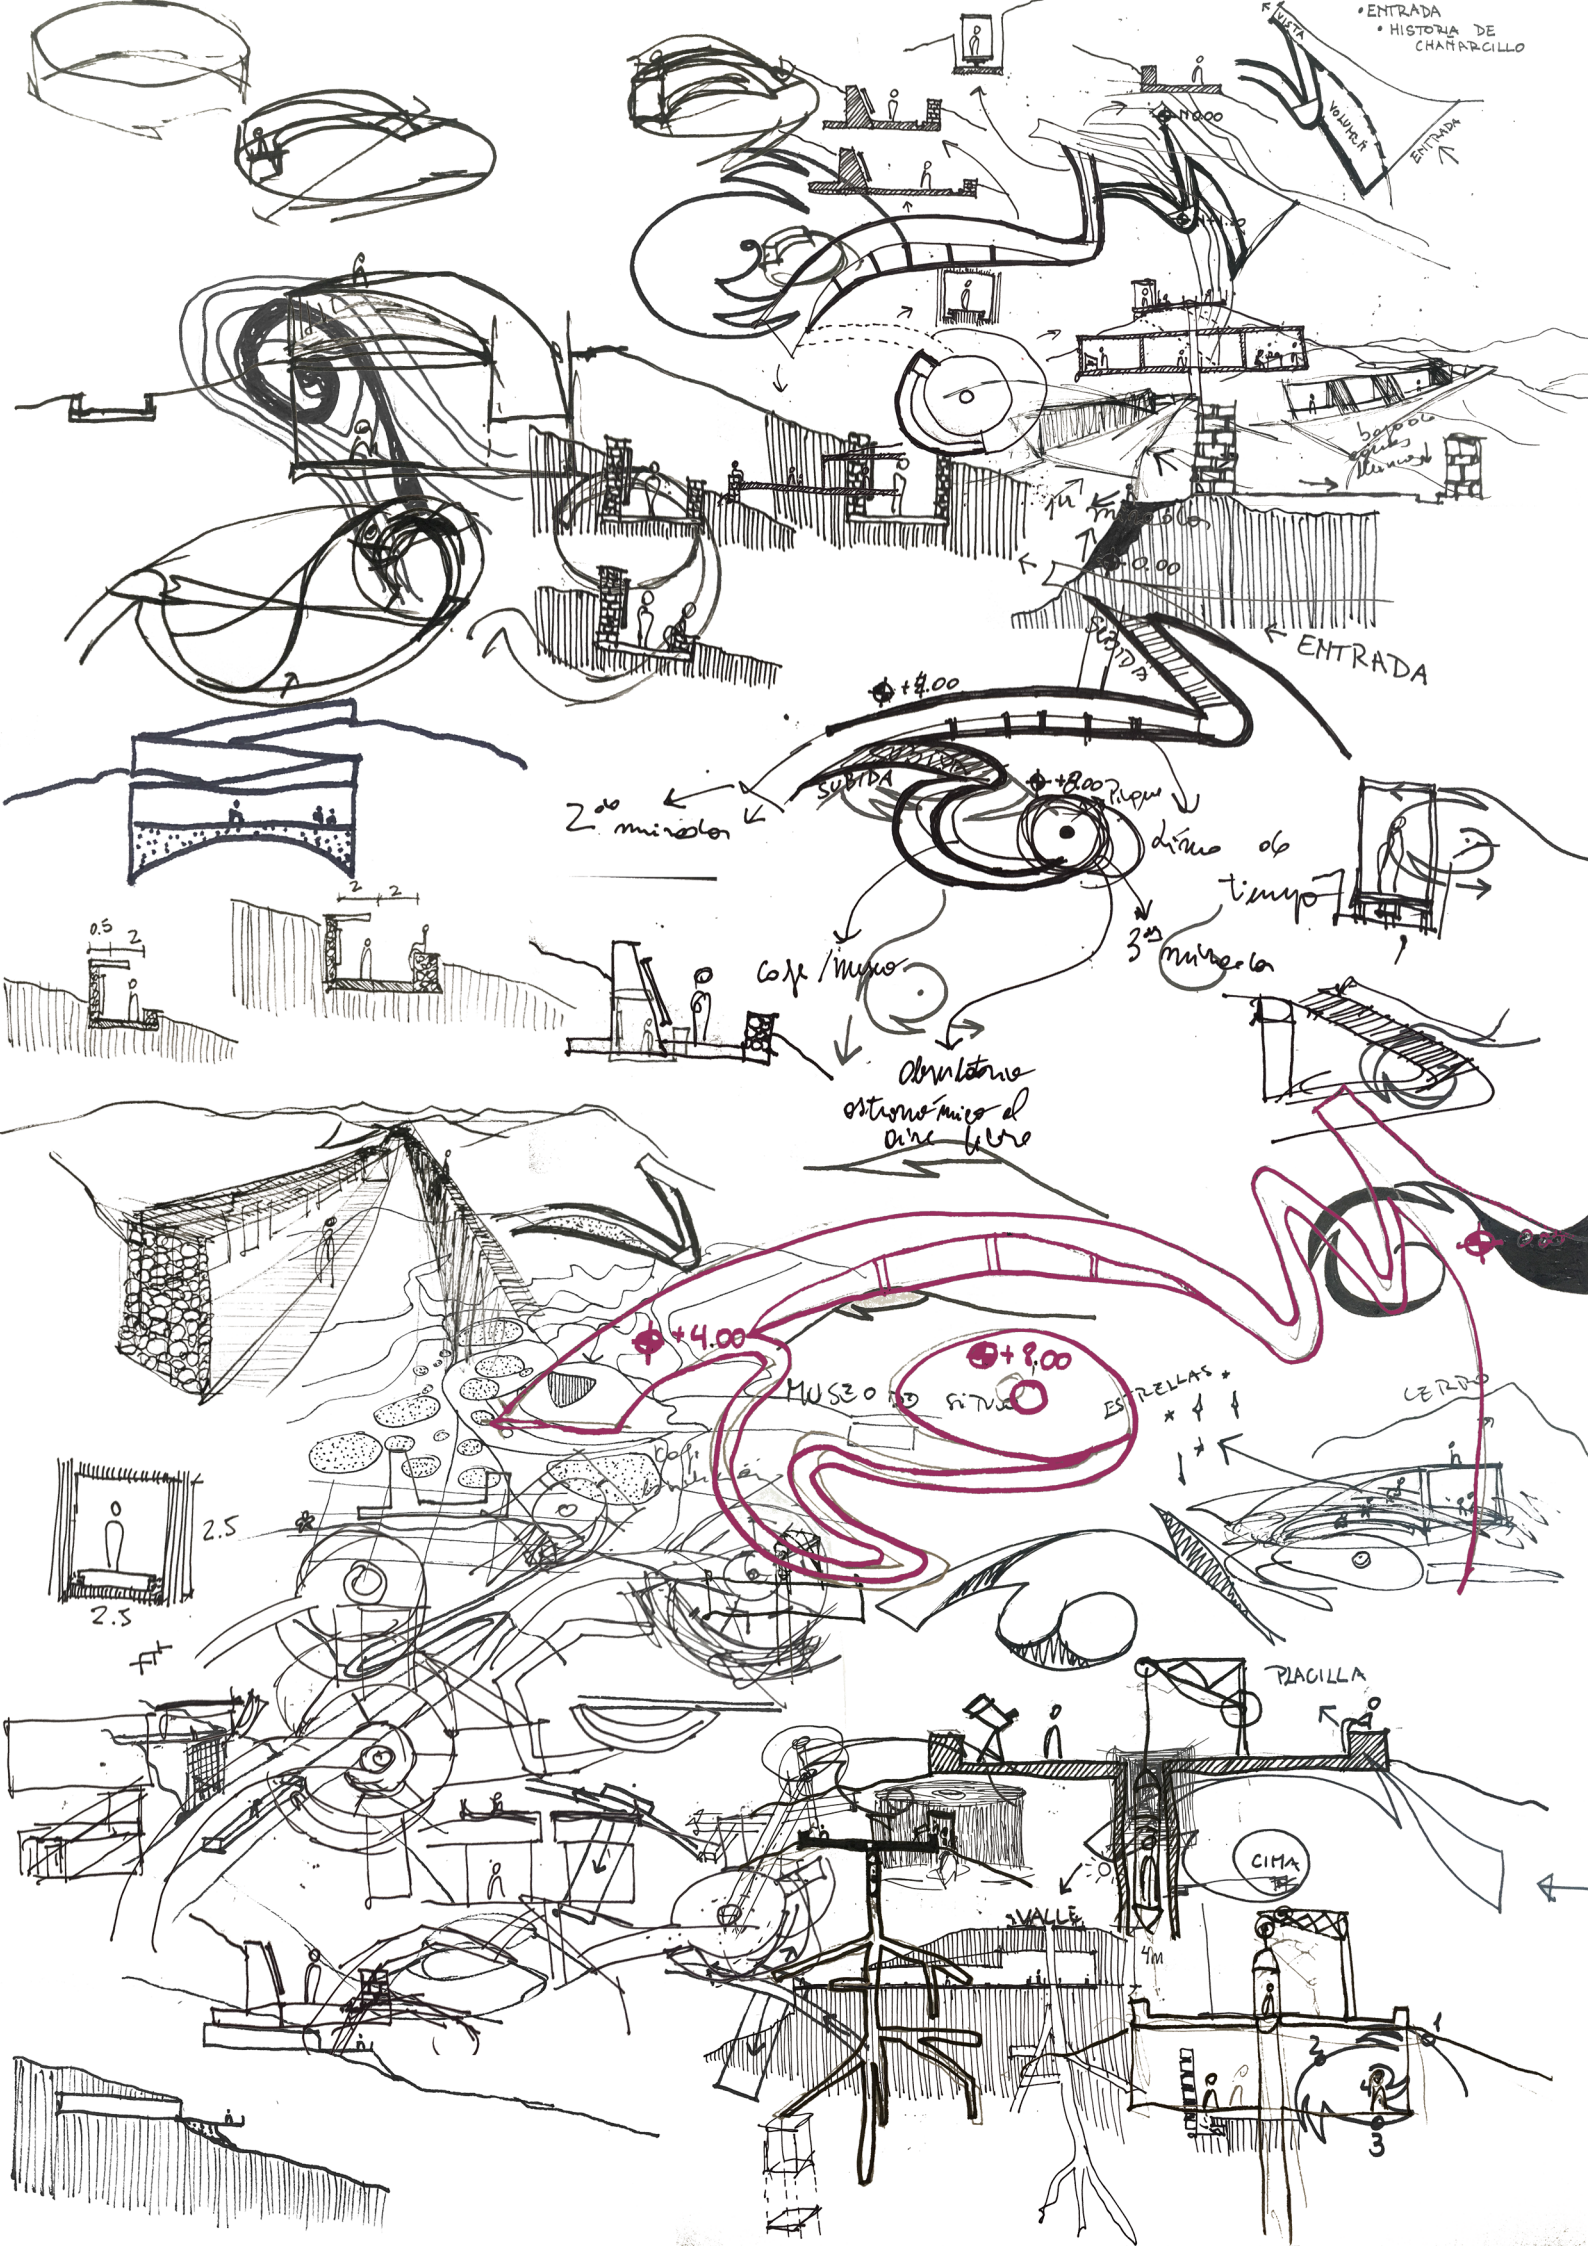 • ENTRADA
• HISTORIA DE
CHAÑARCILLO
VISTA
VOLUMEN
ENTRADA
N 0.00
0.00
ENTRADA
SUBIDA
SUBIDA
+8.00
2do mirador
Línea de
tiempo
3er mirador
Café / museo
Observatorio
astronómico al
aire libre
2 2
0.5 2
+4.00
+8.00
0.00
MUSEO DE SITIO
ESTRELLAS
CERRO
2.5
2.5
PLACILLA
CIMA
VALLE
4m
1
2
4
3